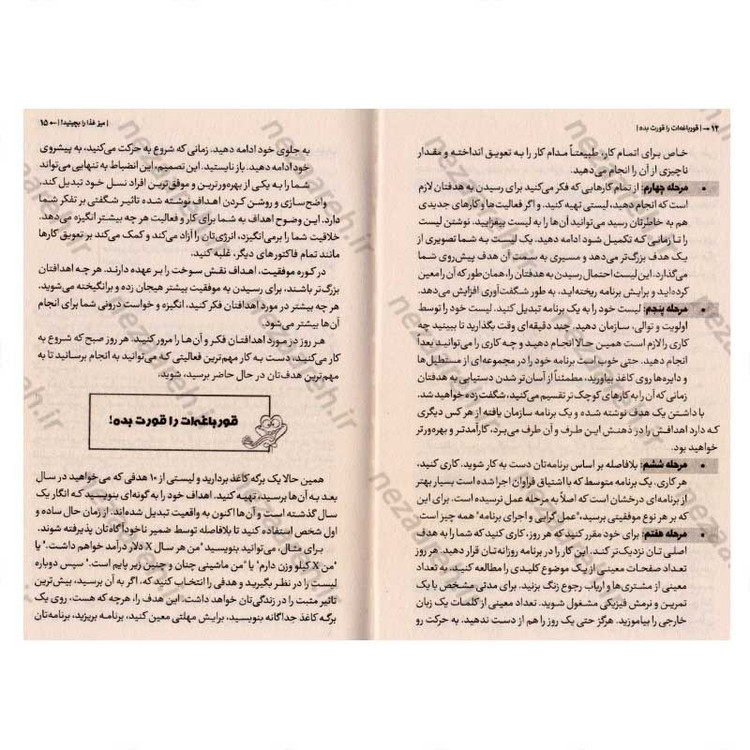 ۱۴ → | قورباغه‌ات را قورت بده |
خاص برای اتمام کار، طبیعتاً مدام کار را به تعویق انداخته و مقدار
ناچیزی از آن را انجام می‌دهید.
• مرحله چهارم: از تمام کارهایی که فکر می‌کنید برای رسیدن به هدفتان لازم
است که انجام دهید، لیستی تهیه کنید. و اگر فعالیت‌ها و کارهای جدیدی
هم به خاطرتان رسید می‌توانید آن‌ها را به لیست بیفزایید. نوشتن لیست
را تا زمانی که تکمیل شود ادامه دهید. یک لیست به شما تصویری از
یک هدف بزرگ‌تر می‌دهد و مسیری به سمت آن هدف پیش‌روی شما
می‌گذارد. این لیست احتمال رسیدن به هدفتان را، همان‌طور که آن را معین
کرده‌اید و برایش برنامه ریخته‌اید، به طور شگفت‌آوری افزایش می‌دهد.
• مرحله پنجم: لیست خود را به یک برنامه تبدیل کنید. لیست خود را توسط
اولویت و توالی، سازمان دهید. چند دقیقه‌ای وقت بگذارید تا ببینید چه
کاری را لازم است همین حالا انجام دهید و چه کاری را می‌توانید بعداً
انجام دهید. حتی خوب است برنامه خود را در مجموعه‌ای از مستطیل‌ها
و دایره‌ها روی کاغذ بیاورید. مطمئناً از آسان‌تر شدن دستیابی به هدفتان
زمانی که آن را به کارهای کوچک‌تر تقسیم می‌کنید، شگفت زده خواهید شد.
با داشتن یک هدف نوشته شده و یک برنامه سازمان یافته از هر کس دیگری
که دارد اهدافش را در ذهنش این طرف و آن طرف می‌برد، کارآمدتر و بهره‌ورتر
خواهید بود.
• مرحله ششم: بلافاصله بر اساس برنامه‌تان دست به کار شوید. کاری کنید،
هر کاری. یک برنامه متوسط که با اشتیاق فراوان اجرا شده است بسیار بهتر
از برنامه‌ای درخشان است که اصلاً به مرحله عمل نرسیده است. برای این
که بر هر نوع موفقیتی برسید، "عمل گرایی و اجرای برنامه" همه چیز است.
• مرحله هفتم: برای خود مقرر کنید که هر روز، کاری کنید که شما را به هدف
اصلی تان نزدیک‌تر کند. این کار را در برنامه روزانه‌تان قرار دهید. هر روز
تعداد صفحات معینی از یک موضوع کلیدی را مطالعه کنید، به تعداد
معینی از مشتری‌ها و ارباب رجوع زنگ بزنید. برای مدتی مشخص با یک
تمرین و نرمش فیزیکی مشغول شوید. تعداد معینی از کلمات یک زبان
خارجی را بیاموزید. هرگز حتی یک روز را هم از دست ندهید. به حرکت رو
| میز غذا را بچینید! | ← ۱۵
به جلوی خود ادامه دهید. زمانی که شروع به حرکت می‌کنید، به پیشروی
خود ادامه دهید. باز نایستید. این تصمیم، این انضباط به تنهایی می‌تواند
شما را به یکی از بهره‌ورترین و موفق‌ترین افراد نسل خود تبدیل کند.
واضح‌سازی و روشن کردن اهداف نوشته شده تاثیر شگفتی بر تفکر شما
دارد. این وضوح اهداف به شما برای کار و فعالیت هر چه بیشتر انگیزه می‌دهد،
خلاقیت شما را برمی‌انگیزد، انرژی‌تان را آزاد می‌کند و کمک می‌کند بر تعویق کارها
مانند تمام فاکتورهای دیگر، غلبه کنید.
در کوره موفقیت، اهداف نقش سوخت را بر عهده دارند. هر چه اهدافتان
بزرگ‌تر باشند، برای رسیدن به موفقیت بیشتر هیجان زده و برانگیخته می‌شوید.
هر چه بیشتر در مورد اهدافتان فکر کنید، انگیزه و خواست درونی شما برای انجام
آن‌ها بیشتر می‌شود.
هر روز در مورد اهدافتان فکر و آن‌ها را مرور کنید. هر روز صبح که شروع به
کار می‌کنید، دست به کار مهم‌ترین فعالیتی که می‌توانید به انجام برسانید تا به
مهم‌ترین هدف‌تان در حال حاضر برسید، شوید.
قورباغه‌ات را قورت بده!
همین حالا یک برگه کاغذ بردارید و لیستی از ۱۰ هدفی که می‌خواهید در سال
بعد به آن‌ها برسید، تهیه کنید. اهداف خود را به گونه‌ای بنویسید که انگار یک
سال گذشته است و آن‌ها اکنون به واقعیت تبدیل شده‌اند. از زمان حال ساده و
اول شخص استفاده کنید تا بلافاصله توسط ضمیر ناخودآگاه‌تان پذیرفته شوند.
برای مثال، می‌توانید بنویسید "من هر سال X دلار درآمد خواهم داشت." یا
"من X کیلو وزن دارم" یا "من ماشینی چنان و چنین زیر پایم است." سپس دوباره
لیست را در نظر بگیرید و هدفی را انتخاب کنید که، اگر به آن برسید، بیش‌ترین
تاثیر مثبت را در زندگی‌تان خواهد داشت. این هدف را، هرچه که هست، روی یک
برگه کاغذ جداگانه بنویسید، برایش مهلتی معین کنید، برنامه بریزید، برنامه‌تان
nezareh.ir